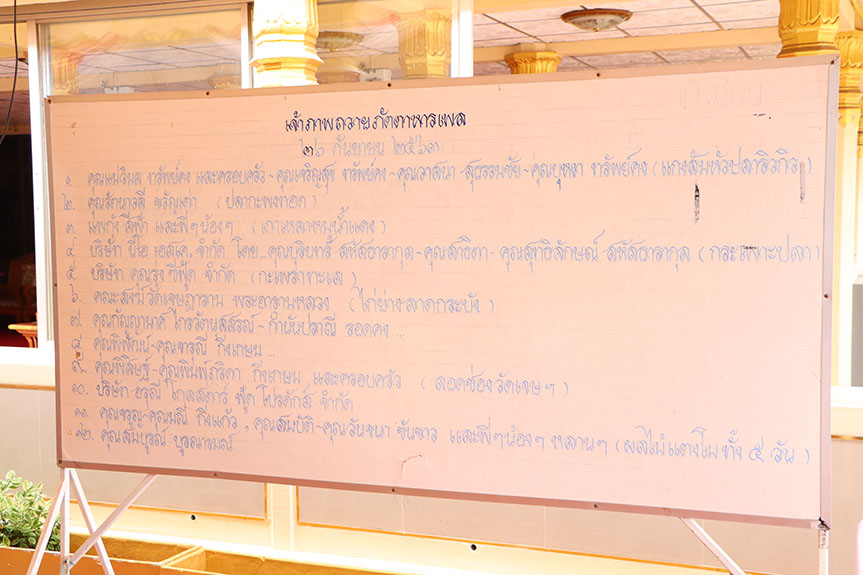 เจ้าภาพถวายภัตตาหารเพล
๒๖ กันยายน ๒๕๖๓
๑. คุณแม่วิมล ทรัพย์คง และครอบครัว ~ คุณเจริญสุข ทรัพย์คง ~ คุณวาสนา - สุธรรมชัย ~ คุณบุหลา ทรัพย์คง (แกงส้มหัวปลาริวกิว)
๒. คุณรัตนาวลี (ปลากะพงทอด)
๓. แพกุ้งสี่ฟ้า และพี่ๆน้องๆ (เกาเหลาหมูน้ำแดง)
๔. บริษัท บีโอ เอสเค. จำกัด โดย.. คุณบุรินทร์ สหัสธารากุล ~ คุณสาธิตา - คุณสุทธิลักษณ์ สหัสธารากุล (กระเพาะปลา)
๕. บริษัท คุณรุ่ง ซีฟู้ด จำกัด (กะเพราทะเล)
๖. คณะสงฆ์วัดเจษฎาราม พระอารามหลวง (ไก่ย่างลาดกระบัง)
๗. คุณกัญญาณาค ไกรวัตนุสสรณ์ ~ กำนันปราณี รอดคง ...
๘. คุณพิพัฒน์ ~ คุณจารุณี กิ่งเกษม ...
๙. คุณพิสิษฐ์ ~ คุณพิมพ์ภริตา กิ่งเกษม และครอบครัว (ลอดช่องวัดเจษฯ)
๑๐. บริษัท อรุณี โกลสตาร์ ฟู้ด โปรดักส์ จำกัด
๑๑. คุณจรูญ ~ คุณมณี กิ่งแก้ว, คุณสมบัติ ~ คุณวันทนา ขันขาว และพี่ๆน้องๆ หลานๆ (ผลไม้แตงโมทั้ง ๕ วัน)
๑๒. คุณสมบูรณ์ บูรณารมณ์